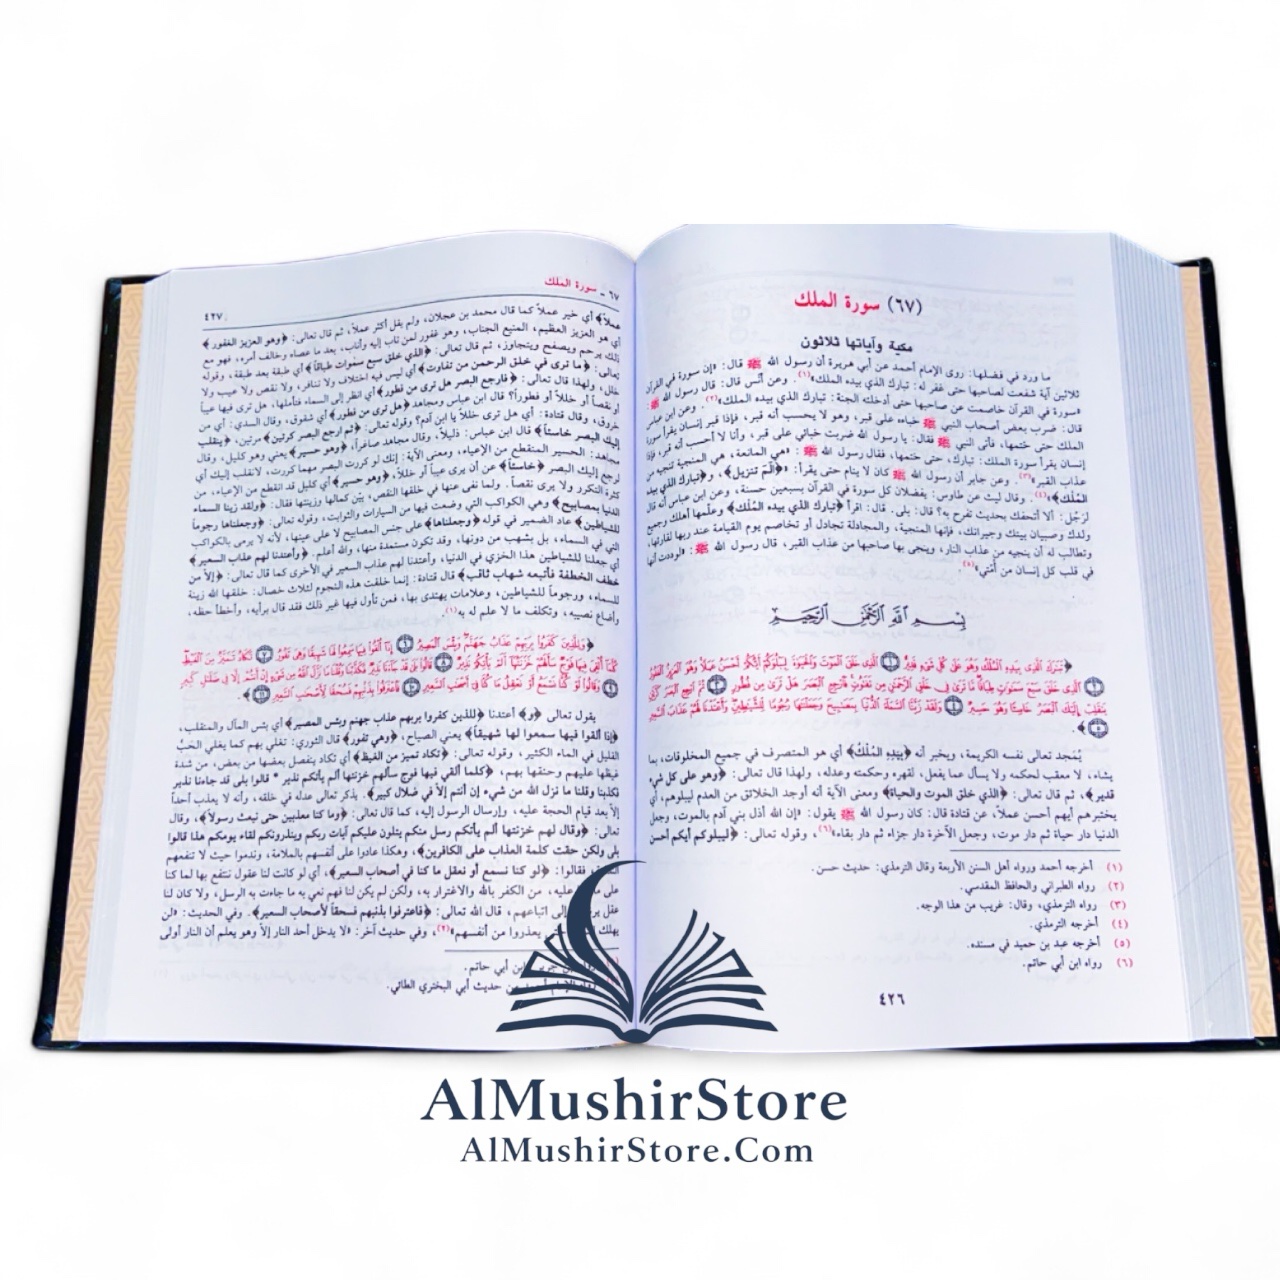 (٦٧) سورة الملك
مكية وآياتها ثلاثون
ما ورد في فضلها: روى الإمام أحمد عن أبي هريرة أن رسول الله ﷺ قال: «إن سورة في القرآن
ثلاثين آية شفعت لصاحبها حتى غفر له: تبارك الذي بيده الملك»(١). وعن أنس قال: قال رسول الله ﷺ:
«سورة في القرآن خاصمت عن صاحبها حتى أدخلته الجنة: تبارك الذي بيده الملك»(٢). وعن ابن عباس
قال: ضرب بعض أصحاب النبي ﷺ خباءه على قبر، وهو لا يحسب أنه قبر، فإذا قبر إنسان يقرأ سورة
الملك حتى ختمها، فأتى النبي ﷺ فقال: يا رسول الله ضربت خبائي على قبر، وأنا لا أحسب أنه قبر، فإذا
إنسان يقرأ سورة الملك: تبارك، حتى ختمها، فقال رسول الله ﷺ: «هي المانعة، هي المنجية تنجيه من
عذاب القبر»(٣). وعن جابر أن رسول الله ﷺ كان لا ينام حتى يقرأ: ﴿الٓمٓ تنزيل﴾، و﴿تبارك الذي بيده
المُلْك﴾(٤). وقال ليث عن طاوس: يفضلان كل سورة في القرآن بسبعين حسنة، وعن ابن عباس أنه قال
لرجُل: ألا أتحفك بحديث تفرح به؟ قال: بلى. قال: اقرأ ﴿تبارك الذي بيده المُلْك﴾ وعلّمها أهلك وجميع
ولدك وصبيان بيتك وجيرانك، فإنها المنجية، والمجادلة تجادل أو تخاصم يوم القيامة عند ربها لقارئها،
وتطالب له أن ينجيه من عذاب النار، وينجى بها صاحبها من عذاب القبر، قال رسول الله ﷺ: «لوددت أنها
في قلب كل إنسان من أُمتي»(٥)
بسم الله الرحمن الرحيم
يُمجد تعالى نفسه الكريمة، ويخبر أنه ﴿بيده المُلْكُ﴾ أي هو المتصرف في جميع المخلوقات، بما
يشاء، لا معقب لحكمه ولا يسأل عما يفعل، لقهره وحكمته وعدله، ولهذا قال تعالى: ﴿وهو على كل شيء
قدير﴾، ثم قال تعالى: ﴿الذي خلق الموت والحياة﴾ ومعنى الآية أنه أوجد الخلائق من العدم ليبلوهم، أي
يختبرهم أيهم أحسن عملاً، عن قتادة: قال: كان رسول الله ﷺ يقول: «إن الله أذل بني آدم بالموت، وجعل
الدنيا دار حياة ثم دار موت، وجعل الآخرة دار جزاء ثم دار بقاء»(٦)، وقوله تعالى: ﴿ليبلوكم أيكم أحسن
(١) أخرجه أحمد ورواه أهل السنن الأربعة وقال الترمذي: حديث حسن.
(٢) رواه الطبراني والحافظ المقدسي.
(٣) رواه الترمذي، وقال: غريب من هذا الوجه.
(٤) أخرجه الترمذي.
(٥) أخرجه عبد بن حميد في مسنده.
(٦) رواه ابن أبي حاتم.
٤٢٦
٦٧ ـ سورة الملك
٤٢٧
عملاً﴾ أي خير عملاً كما قال محمد بن عجلان، ولم يقل أكثر عملاً، ثم قال تعالى: ﴿وهو العزيز الغفور﴾
أي هو العزيز العظيم، المنيع الجناب، وهو غفور لمن تاب إليه وأناب، بعد ما عصاه وخالف أمره، فهو مع
ذلك يرحم ويصفح ويتجاوز، ثم قال تعالى: ﴿الذي خلق سبع سموات طباقاً﴾ أي طبقة بعد طبقة، وقوله
تعالى: ﴿ما ترى في خلق الرحمن من تفاوت﴾ أي ليس فيه اختلاف ولا تنافر، ولا نقص ولا عيب ولا
خلل، ولهذا قال تعالى: ﴿فارجع البصر هل ترى من فطور﴾ أي انظر إلى السماء فتأملها، هل ترى فيها عيباً
أو نقصاً أو خللاً أو فطوراً؟ قال ابن عباس ومجاهد ﴿هل ترى من فطور﴾ أي شقوق، وقال السدي: أي من
خروق، وقال قتادة: أي هل ترى خللاً يا ابن آدم؟ وقوله تعالى: ﴿ثم ارجع البصر كرتين﴾ مرتين، ﴿ينقلب
إليك البصر خاسئاً﴾ قال ابن عباس: ذليلاً، وقال مجاهد صاغراً، ﴿وهو حسير﴾ يعني وهو كليل، وقال
مجاهد: الحسير المنقطع من الإعياء، ومعنى الآية: إنك لو كررت البصر مهما كررت، لانقلب إليك أي
لرجع إليك البصر ﴿خاسئاً﴾ عن أن يرى عيباً أو خللاً، ﴿وهو حسير﴾ أي كليل قد انقطع من الإعياء، من
كثرة التكرر ولا يرى نقصاً. ولما نفى عنها في خلقها النقص، بيّن كمالها وزينتها فقال: ﴿ولقد زينا السماء
الدنيا بمصابيح﴾ وهي الكواكب التي وضعت فيها من السيارات والثوابت، وقوله تعالى: ﴿وجعلناها رجوماً
للشياطين﴾ عاد الضمير في قوله ﴿وجعلناها﴾ على جنس المصابيح لا على عينها، لأنه لا يرمى بالكواكب
التي في السماء، بل بشهب من دونها، وقد تكون مستمدة منها، والله أعلم. ﴿وأعتدنا لهم عذاب السعير﴾
أي جعلنا للشياطين هذا الخزي في الدنيا، وأعتدنا لهم عذاب السعير في الأخرى كما قال تعالى: ﴿إلا من
خطف الخطفة فأتبعه شهاب ثاقب﴾ قال قتادة: إنما خلقت هذه النجوم لثلاث خصال: خلقها الله زينة
للسماء، ورجوماً للشياطين، وعلامات يهتدى بها، فمن تأول فيها غير ذلك فقد قال برأيه، وأخطأ حظه،
وأضاع نصيبه، وتكلف ما لا علم له به(١)
يقول تعالى ﴿و﴾ أعتدنا ﴿للذين كفروا بربهم عذاب جهنم وبئس المصير﴾ أي بئس المآل والمنقلب،
﴿إذا ألقوا فيها سمعوا لها شهيقاً﴾ يعني الصياح، ﴿وهي تفور﴾ قال الثوري: تغلي بهم كما يغلي الحَبُّ
القليل في الماء الكثير، وقوله تعالى: ﴿تكاد تميز من الغيظ﴾ أي تكاد ينفصل بعضها من بعض، من شدة
غيظها عليهم وحنقها بهم، ﴿كلما ألقي فيها فوج سألهم خزنتها ألم يأتكم نذير * قالوا بلى قد جاءنا نذير
فكذبنا وقلنا ما نزل الله من شيء إن أنتم إلا في ضلال كبير﴾. يذكر تعالى عدله في خلقه، وأنه لا يعذب أحداً
إلا بعد قيام الحجة عليه، وإرسال الرسول إليه، كما قال تعالى: ﴿وما كنا معذبين حتى نبعث رسولا﴾، وقال
تعالى: ﴿وقال لهم خزنتها ألم يأتكم رسل منكم يتلون عليكم آيات ربكم وينذرونكم لقاء يومكم هذا قالوا
بلى ولكن حقت كلمة العذاب على الكافرين﴾، وهكذا عادوا على أنفسهم بالملامة، وندموا حيث لا تنفعهم
فقالوا: ﴿لو كنا نسمع أو نعقل ما كنا في أصحاب السعير﴾، أي لو كانت لنا عقول ننتفع بها لما كنا
على ما عليه، من الكفر بالله والاغترار به، ولكن لم يكن لنا فهم نعي به ما جاءت به الرسل، ولا كان لنا
عقل اتباعهم، قال الله تعالى: ﴿فاعترفوا بذنبهم فسحقاً لأصحاب السعير﴾. وفي الحديث: «لن
يهلك حتى يعذروا من أنفسهم»(٢)، وفي حديث آخر: «لا يدخل أحد النار إلا وهو يعلم أن النار أولى
ابن أبي حاتم.
من حديث أبي البختري الطائي.
AlMushirStore
AlMushirStore.Com